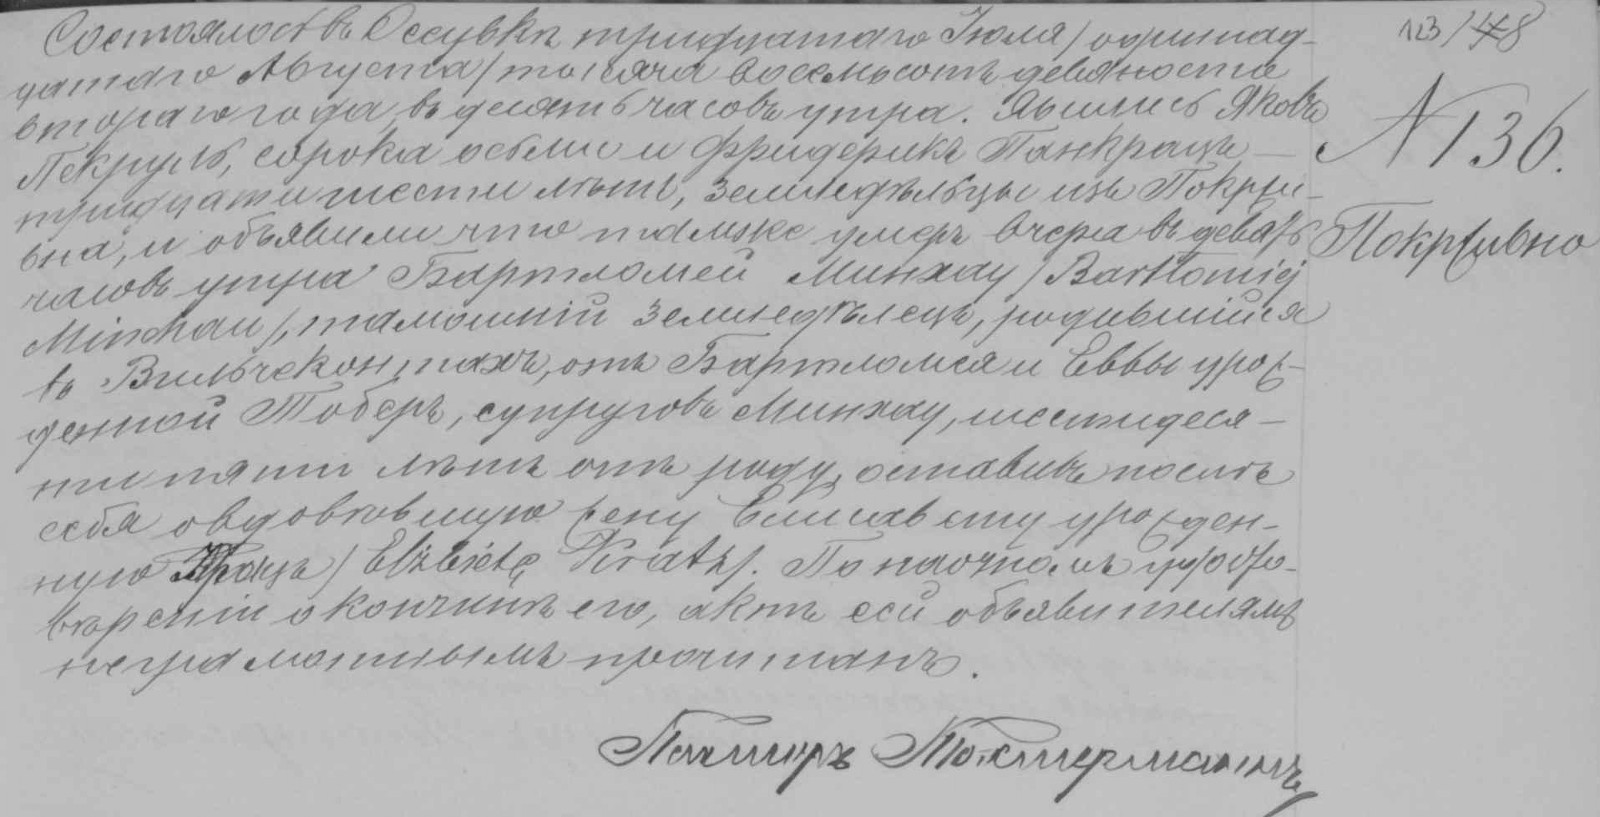 123/148
№ 136.
Покрживно
Состоялось въ Оссувкѣ тридцатаго Іюля / одинад-
цатаго Августа / тысяча восемьсотъ девяноста
втораго года, въ десять часовъ утра. Явились Яковъ
Пекруль, сорока осьми и Фридерикъ Панкрацъ —
тридцати шести лѣтъ, земледѣльцы изъ Покржи-
вна, и объявили что тамже умеръ вчера въ девять
часовъ утра Бартломей Минхау / Bartłomiej
Minchau /, тамошній земледѣлецъ, родившійся
въ Вильчеконтахъ, отъ Бартломея и Еввы урож-
денной Тоберъ, супруговъ Минхау, шестидеся-
ти пяти лѣтъ отъ роду, оставивъ послѣ
себя овдовѣвшую жену Елисавету урожден-
ную / Elżbietę По наочномъ удосто-
вѣреніи о кончинѣ его, актъ сей объявителямъ
неграмотнымъ прочитанъ.
Пасторъ